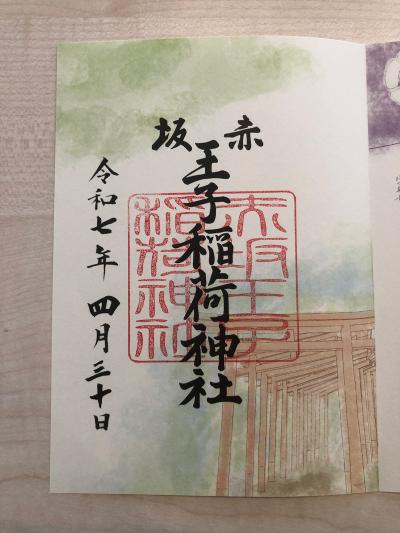 赤坂
王子稲荷神社
赤坂王子
稲荷神社
令和七年 四月三十日